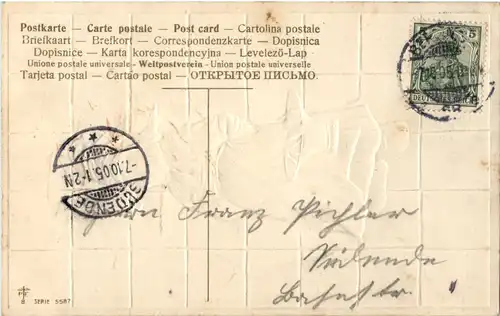 Postkarte — Carte postale — Post card — Cartolina postale
Briefkaart — Brefkort — Correspondenzkarte — Dopisnica
Dopisnice — Karta korespondencyjna — Levelező-Lap
Unione postale universale - Weltpostverein - Union postale universelle
Tarjeta postal — Cartão postal — ОТКРЫТОЕ ПИСЬМО.
5
DEUTSCHES REICH
-7.10.05.1-2N
SÜDENDE
Herrn Franz Pichler
Südende
Bahnstr.
SERIE 5587